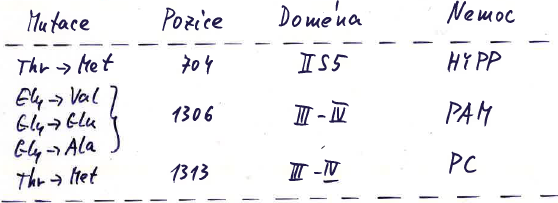 Mutace Pozice Doména Nemoc
Thr → Met 704 II S5 HYPP
Gly → Val
Gly → Glu 1306 III - IV PAM
Gly → Ala
Thr → Met 1313 III - IV PC